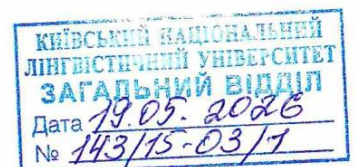 КИЇВСЬКИЙ НАЦІОНАЛЬНИЙ
ЛІНГВІСТИЧНИЙ УНІВЕРСИТЕТ
ЗАГАЛЬНИЙ ВІДДІЛ
Дата 19.05. 2026
№ 143/15-03/1